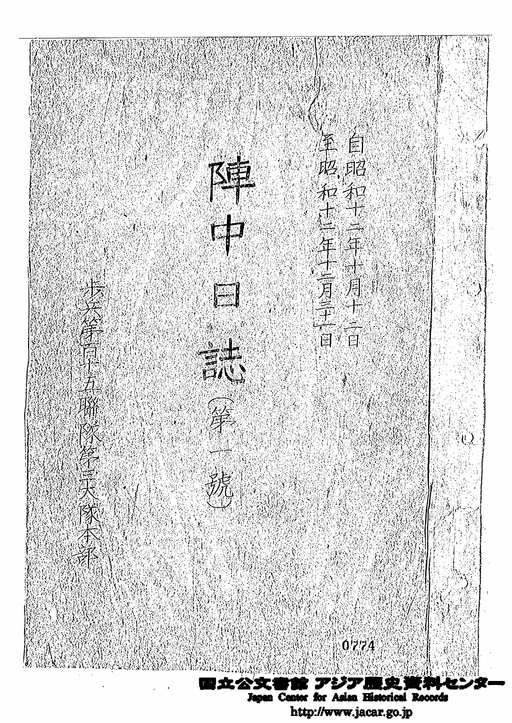 自昭和十二年十月十二日
至昭和十二年十二月三十一日
陣中日誌(第一號)
歩兵第百十五聯隊第三大隊本部
0774
国立公文書館 アジア歴史資料センター
Japan Center for Asian Historical Records
http://www.jacar.go.jp